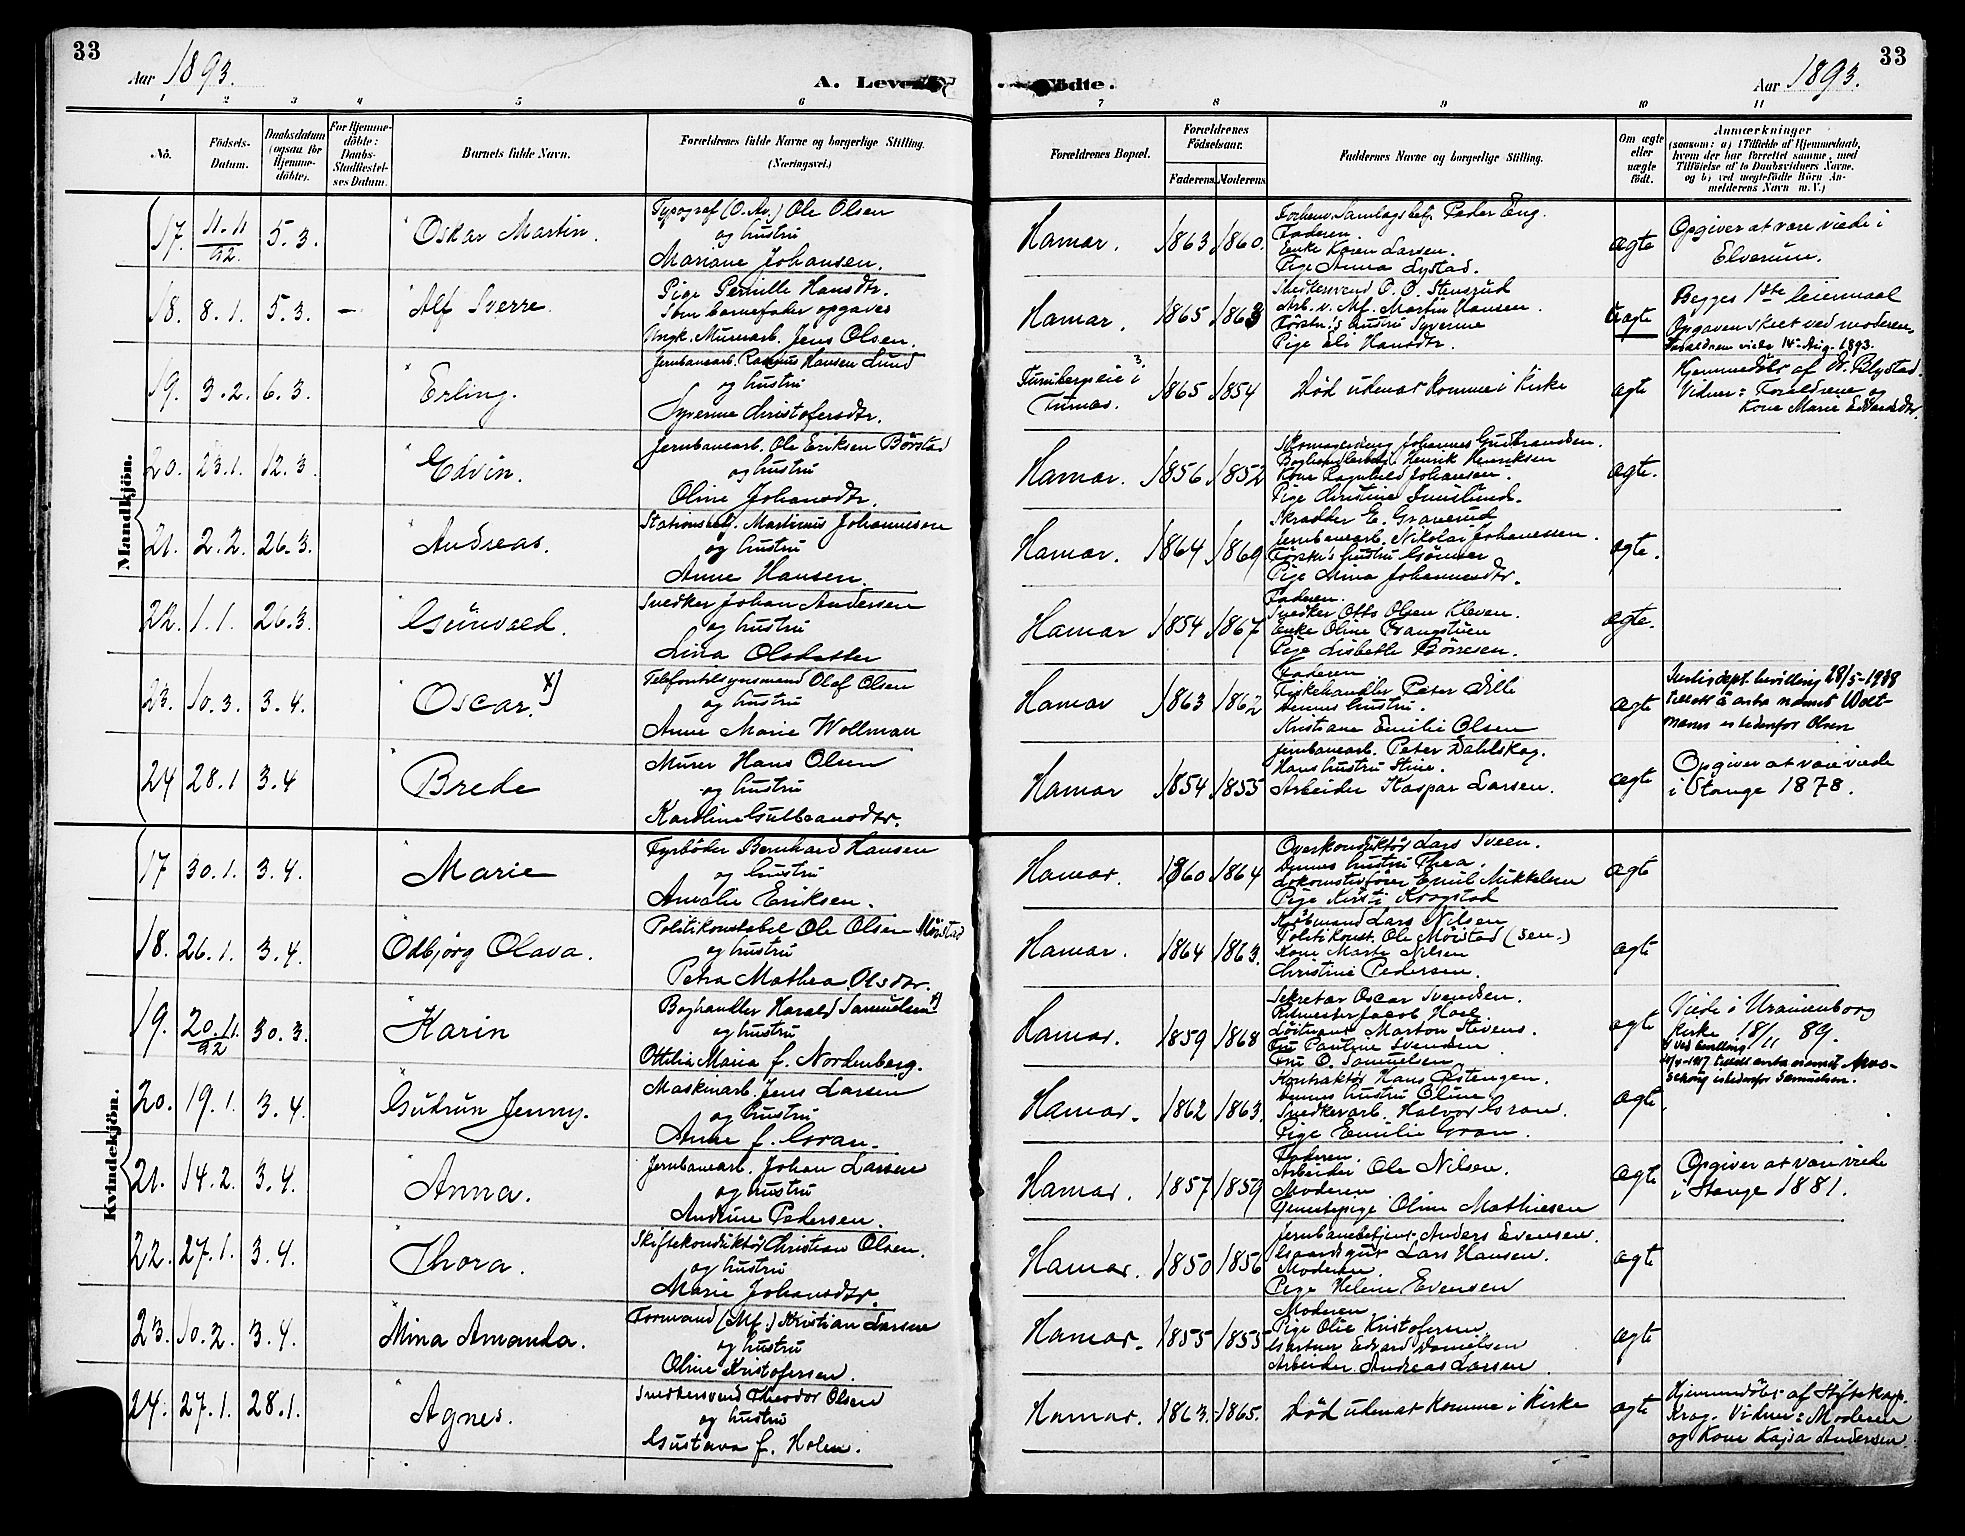 33
Aar 1893.
A. Levende
Födte.
Aar 1893.
33
1 2 3 4 5 6 7 8 9 10 11
Nö.
Födsels-Datum.
Daabsdatum (ogsaa for Hjemme-döbte).
For Hjemme-döbte: Daabs-Stadfæstel-ses Datum.
Barnets fulde Navn.
Forældrenes fulde Navne og borgerlige Stilling. (Næringsvei.)
Forældrenes Bopæl.
Forældrenes Födselsaar.
Faderens. Moderens.
Faddernes Navne og borgerlige Stilling.
Om ægte eller uægte födt.
Anmærkninger
(saasom: a) i Tilfælde af Hjemmedaab, hvem der har forrettet samme, med Tilföielse af to Daabsvidners Navne, og b) ved uægtefödte Börn An-melderens Navn m. V.)
Mandkjön.
17. 11.11/92. 5.3. Oskar Martin.
Typograf (O. Av.) Ole Olsen
og hustru
Mariane Johansen.
Hamar. 1863 1860.
Peder Eng.
Faderen
Enke Karen Larsen.
Pige Anna Lystad.
ægte
Opgiver at være viede i
Elverum.
18. 8.1. 5.3. — Alf Sverre.
Pige Pernille Hansdtr.
Som barnefader opgaves
Ungk. Murarb. Jens Olsen.
Hamar. 1865 1863
O. O. Stensrud
Arb. v. Mf. Martin Hansen.
Förstn's hustru Syverine
Pige Eli Hansdtr.
uægte
Begges 1ste leiermaal
Opgaven skeet ved moderen.
Forældrene viede 14. Aug. 1893.
19. 3.2. 6.3. Erling.
Jernbanearb. Rasmus Hansen Lund
og hustru
Syverine Christofersdtr.
Furubergseie i
Furnæs. 1865 1854
Död uden at komme i Kirke
ægte
Hjemmedöbt af
Vidner: Forældrene og
Kone Marie Edvardsdtr.
20. 23.1. 12.3. Edvin.
Jernbanearb. Ole Eriksen Börstad
og hustru
Oline Johansdtr.
Hamar. 1856 1852
Johannes Gudbrandsen.
Henrik Henriksen
Kone Ragnhild Johansen.
Pige Christine
ægte.
21. 2.2. 26.3. Andreas.
Stationsbetj. Martinus Johannesen
og hustru
Anne Hansen.
Hamar. 1864 1869
Skrædder E. Graverud
Jernbanearb. Nikolai Johannessen.
Förstn's hustru Gunner
Pige Lina Johannesdtr.
ægte.
22. 1.1. 26.3. Gunvald.
Snedker Johan Andersen
og hustru
Lina Olsdatter
Hamar 1854 1867
Faderen.
Snedker Otto Olsen Kleven.
Enke Oline Frangstuen
Pige Lisbeth Börresen.
ægte.
23. 10.3. 3.4. Oscar. x)
Telefontilsynsmand Olaf Olsen
og hustru
Anne Marie Wollman
Hamar 1863 1862
Faderen
Fiskehandler Peter Lille
Dennes hustru.
Kristiane Emilie Olsen
ægte
Justisdept. bevilling 28/5-1938
tillatt å anta navnet Wolt-
mann istedenfor Olsen
24 28.1 3.4 Brede
Murer Hans Olsen
og hustru
Karoline Gulbrandsdtr.
Hamar 1854 1855
Jernbanearb. Peter Dahlskog.
Hans hustru Stine.
Arbeider Kaspar Larsen.
ægte
Opgiver at være viede
i Stange 1878.
Kvindekjön.
17 30.1. 3.4. Marie
Fyrböder Bernhard Hansen
og hustru
Amalie Eriksen.
Hamar. 1860 1864
Overkonduktör Lars Sveen.
Dennes hustru Thea.
Lokomotivförer Emil Mikkelsen
Pige Kirsti Krogstad
ægte
18. 26.1. 3.4. Odbjörg Olava.
Politikonstabel Ole Olsen Möistad
og hustru
Petra Mathea Olsdtr.
Hamar. 1864 1863.
Kjöbmand Lars Nilsen
Politikonst. Ole Möistad (sen.)
Kone Marte Nilsen
Christine Pedersen.
ægte
19. 20.11./92 30.3. Karin
Boghandler Harald Samuelsen x)
og hustru
Ottilia Maria f. Nordenberg.
Hamar. 1859 1868
Sekretær Oscar Svendsen.
Ritmester Jacob Hoel
Löitnant Morton Stivens.
Fru Pauline Svendsen
Fru O. Samuelsen
ægte
Viede i Uranienborg
Kirke 18/11 89.
x) Ved bevilling
1917 tillatt anta navnet Arno-
schöug istedenfor Samuelsen.
20. 19.1. 3.4. Gudrun Jenny.
Maskinarb. Jens Larsen
og hustru
Anne f. Gran.
Hamar. 1862 1863.
Kontraktör Hans Östengen.
Dennes hustru Oline.
Snedkerarb. Halvor Gran.
Pige Emilie Gran.
ægte.
21. 14.2. 3.4. Anna.
Jernbanearb. Johan Larsen
og hustru
Andrine Pedersen.
Hamar. 1857 1859
Faderen.
Arbeider Ole Nilsen.
Moderen
Tjenestepige Oline Mathiesen
ægte
Opgiver at være viede
i Stange 1881.
22. 27.1. 3.4. Thora.
Skiftekonduktör Christian Olsen.
og hustru
Marie Johansdtr.
Hamar. 1850 1856
Jernbanebetjent Anders Evensen.
Gaardsgut Lars Hansen.
Moderen
Pige Helene Evensen
ægte
23. 10.2. 3.4. Mina Amanda.
Formand (Mf.) Kristian Larsen
og hustru
Oline Kristofersen.
Hamar. 1855 1855
Moderen
Pige Olie Kristofersen
Gartner Edvard Danielsen
Arbeider Andreas Larsen
ægte
24. 27.1. 28.1. Agnes.
Snedkersvend Theodor Olsen
og hustru
Gustava f. Holen.
Hamar. 1863. 1865.
Död uden at komme i Kirke
ægte
Hjemmedöbt af Stiftskap.
Krag. Vidner: Moderen
og Kone Kajsa Andersen